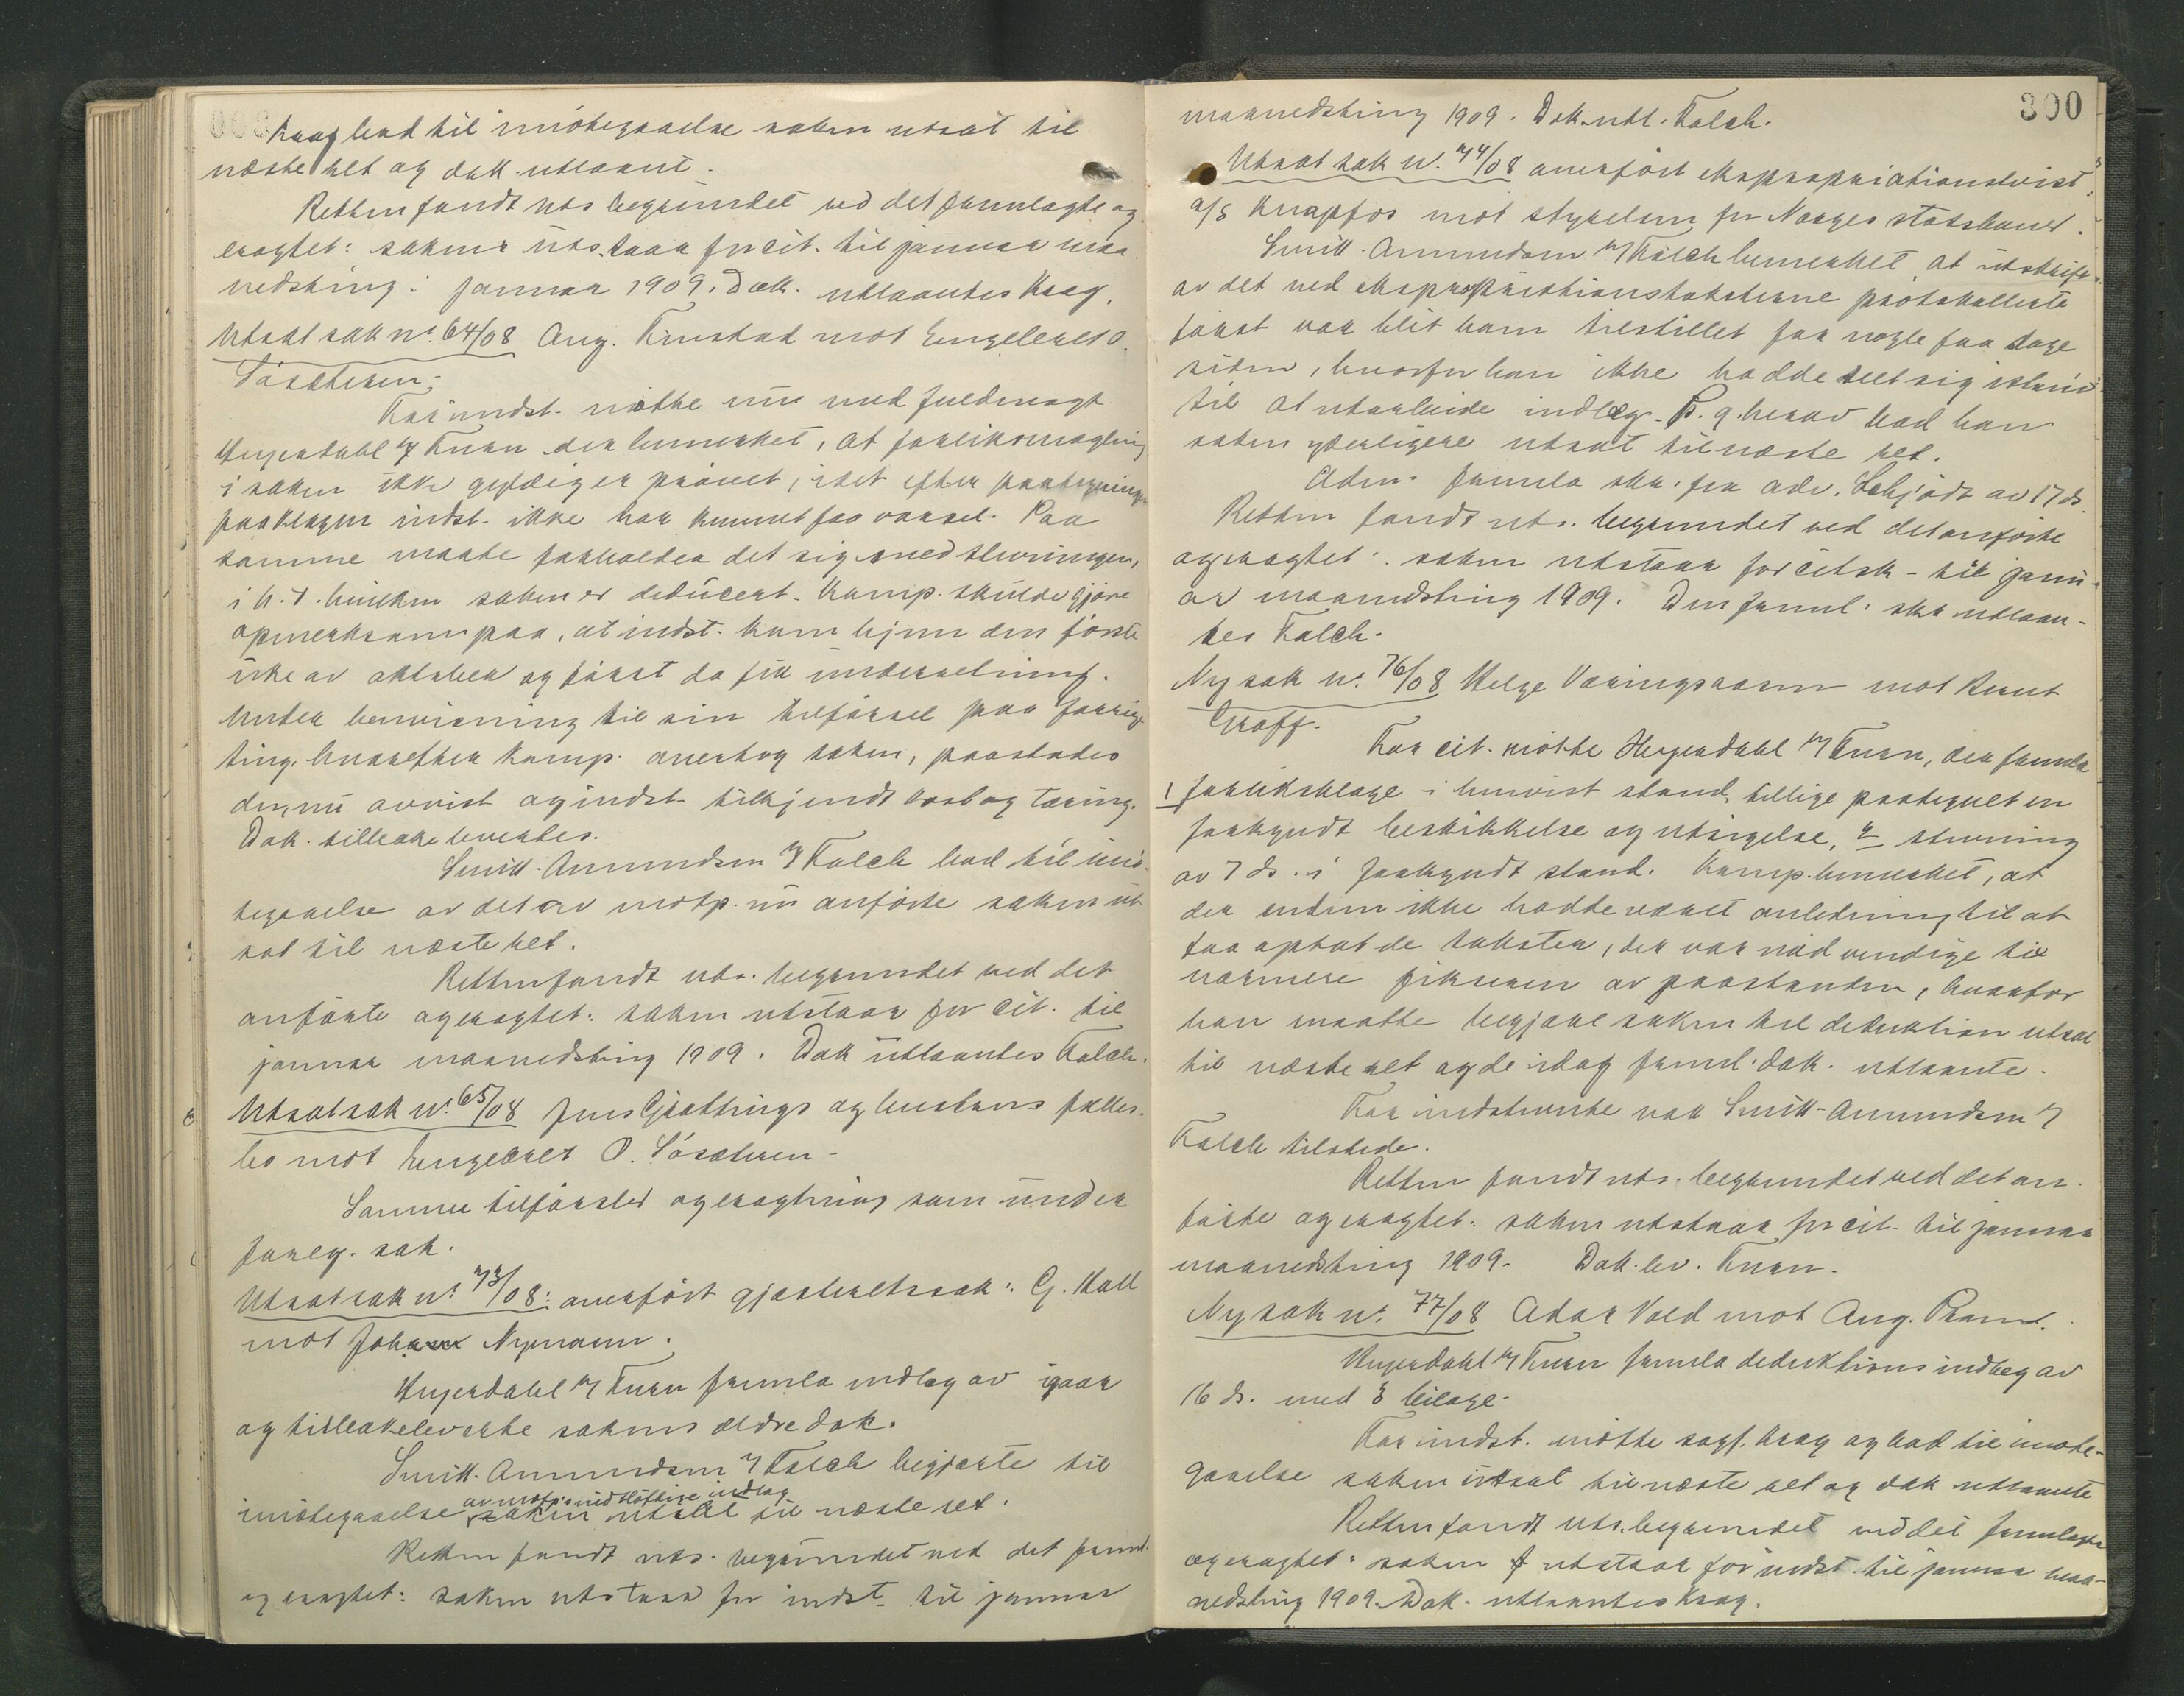 Krag bad til imötegaaelse saken utsat til
næste ret og dok. utlaant.
Retten fandt uts. begrundet ved det fremlagte og
eragtet: saken utstaar for cit. til januar maa
nedsting. januar 1909. Dok. utlaantes Krag.
Utsat sak nr. 64/08 Aug. Trustad mot Engelbret O.
For indst. mötte nu med fuldmagt
Heyerdahl v/ Furu der bemerket, at forliksmægling
i saken ikke gyldig er prövet, idet efter paategning
paa klagen indst. ikke har kunnet faa varsel. Paa
samme maate forholder det sig med stevningen,
i h. t. hvilken saken er deducert. Komp. skulde gjöre
opmerksom paa, at indst. kom hjem den förste
uke av oktober og först da fik underretning.
Under henvisning til sin tilförsel paa forrige
ting, hvorefter komp. overtog saken, paastodes
den nu avvist og indst. tilkjendt kost og tæring.
Dok. tilbakelevertes.
Smith-Amundsen v/ Falch bad til imö-
tegaaelse av det av motp. nu anförte saken ut
sat til næste ret.
Retten fandt uts. begrundet ved det
anförte og eragtet: saken utstaar for cit. til
januar maanedsting 1909. Dok utlaantes Falch.
Utsat sak nr. 65/08 Jens Gjöttrups og hustrus fælles
bo mot Engebret O.
Samme tilförsler og eragtning som under
foreg. sak.
Utsat sak nr. 73/08: overfört gjesteretssak: G. Hall
mot Johan Nymann.
Heyerdahl v/ Furu fremla indlæg av igaar
og tilbakeleverte sakens ældre dok.
Smith-Amundsen v/ Falch begjærte til
av motp.s vidtlöftige indlæg
imötegaaelse saken utsat til næste ret.
Retten fandt uts. begrundet ved det freml.
og eragtet: saken utstaar for indst. til januar
300
maanedsting 1909. Dok. utl. Falch.
Utsat sak nr. 74/08 overfört ekspropriationstvist,
a/s Knapfos mot styrelsen for Norges statsbaner.
Smith-Amundsen v/ Falch bemerket, at utskrift
av det ved ekspropriationstaksterne protokollerte
först var blit ham tilstillet for nogle faa dage
siden, hvorfor han ikke hadde set sig istand
til at utarbeide indlæg. P. g. herav bad han
saken yderligere utsat til næste ret.
Adm. fremla skr. fra adv. Schjödt av 17 ds.
Retten fandt uts. begrundet ved det anförte
og eragtet: saken utstaar for citsk. til janu-
ar maanedsting 1909. Den freml. skr. utlaan-
tes Falch.
Ny sak nr. 76/08 Helge Væringsaasen mot Knut
Graff.
For cit. mötte Heyerdahl v/ Furu, der fremla
1 forliksklage i henvist stand, tillige paategnet en
forkyndt beskikkelse og utsigelse, 2 stevning
av 7 ds. i forkyndt stand. Komp. bemerket, at
der endnu ikke hadde været anledning til at
faa optat de takster, der var nödvendige til
nærmere fikseren av paastanden, hvorfor
han maatte begjære saken til deduktion utsat
til næste ret og de idag freml. dok. utlaante.
For indstevnte var Smith-Amundsen v/
Falch tilstede.
Retten fandt uts. begrundet ved det an-
förte og eragtet: saken utstaar for cit. til januar
maanedsting 1909. Dok. lev. Furu.
Ny sak nr. 77/08 Adar Vold mot Aug.
Heyerdahl v/ Furu fremla deduktionsindlæg av
16 ds. med 3 bilage.
For indst. mötte sagf. Krag og bad til imöte-
gaaelse saken utsat til næste ret og dok utlaante
Retten fandt uts. begrundet ved det fremlagte
og eragtet: saken utstaar for indst. til januar maa-
nedsting 1909. Dok. utlaantes Krag.